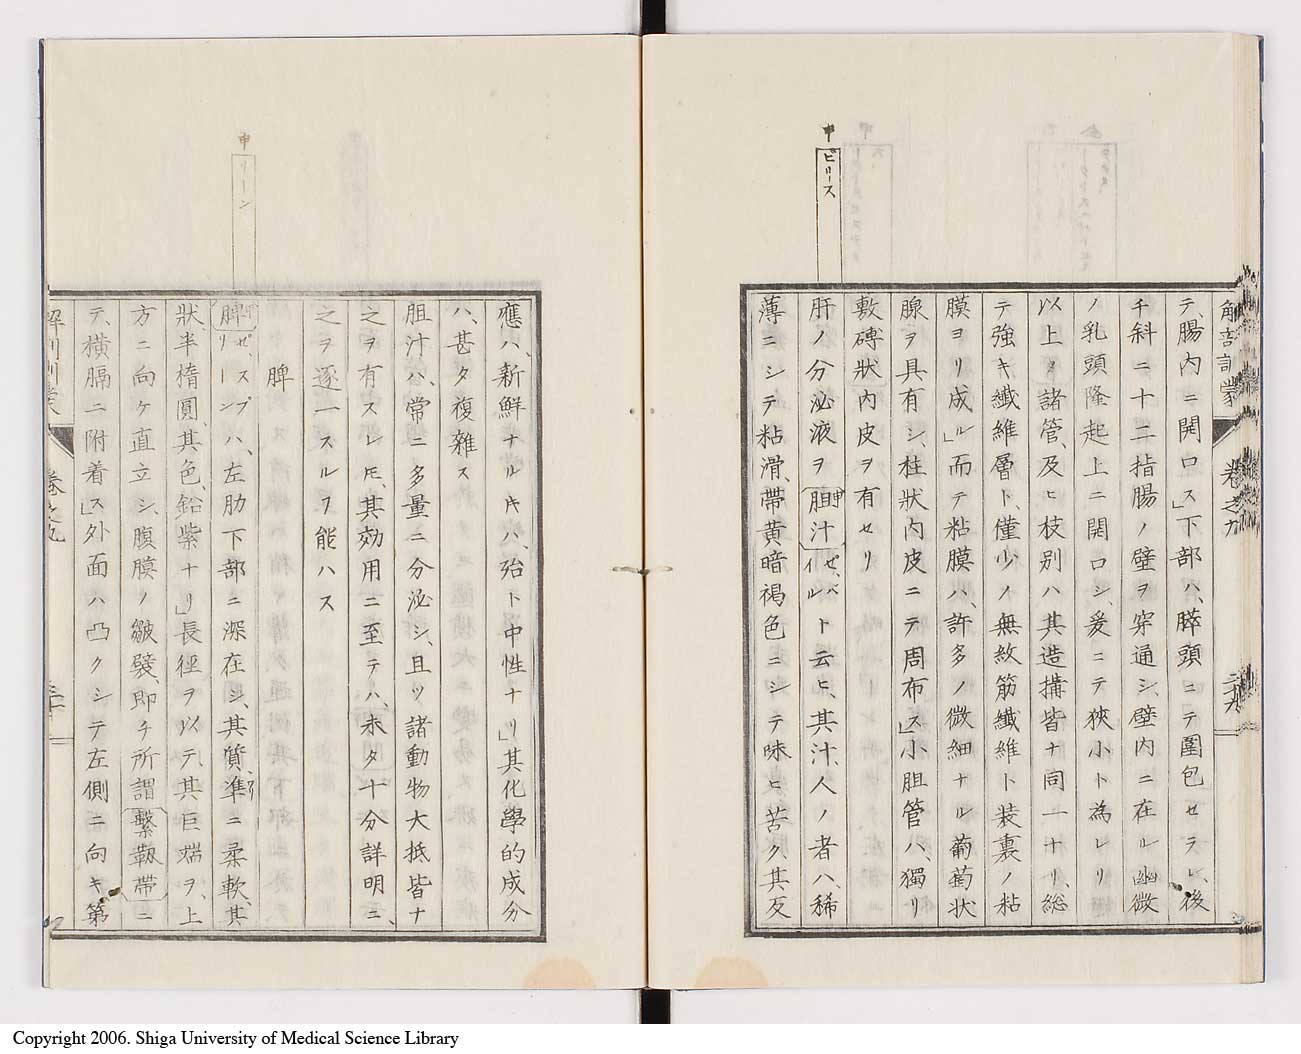 解剖訓蒙 卷之九 二十九
テ、腸内ニ開口ス」下部ハ、膵頭ニテ圍包セラレ、後
チ斜ニ十二指腸ノ壁ヲ穿通シ、壁内ニ在ル幽微
ノ乳頭隆起上ニ開口シ、爰ニテ狹小ト為レリ
以上ノ諸管、及ヒ枝別ハ其造搆皆ナ同一ナリ、総
テ強キ纖維層ト、僅少ノ無紋筋纖維ト装裏ノ粘
膜ヨリ成ル」而テ粘膜ハ、許多ノ微細ナル葡萄状
腺ヲ具有シ、柱狀内皮ニテ周布ス」小胆管ハ、獨リ
敷磚狀内皮ヲ有セリ
申 ビリース
肝ノ分泌液ヲ胆汁 申 ゼ、バイル ト云ヒ、其汁、人ノ者ハ、稀
薄ニシテ粘滑、帶黄暗褐色ニシテ味ヒ苦ク、其反
應ハ、新鮮ナル𪜈ハ、殆ト中性ナリ」其化學的成分
ハ、甚タ複雜ス
胆汁ハ、常ニ多量ニ分泌シ、且ツ諸動物大抵皆ナ
之ヲ有スレ𪜈、其効用ニ至テハ、未タ十分詳明ニ、
之ヲ逐一スルヿ能ハス
脾
申 リーン
脾 申 ゼ、スプリーン ハ、左肋下部ニ深在シ、其質、準ニ柔軟、其
狀半楕圓、其色、鉛紫ナリ」長徑ヲ以テ、其巨端ヲ、上
方ニ向ケ直立シ、腹膜ノ皺襞、即チ所謂繫靱帶ニ
テ、横膈ニ附着ス」外面ハ凸クシテ左側ニ向キ第
解剖訓蒙 卷之九 三十
Copyright 2006. Shiga University of Medical Science Library